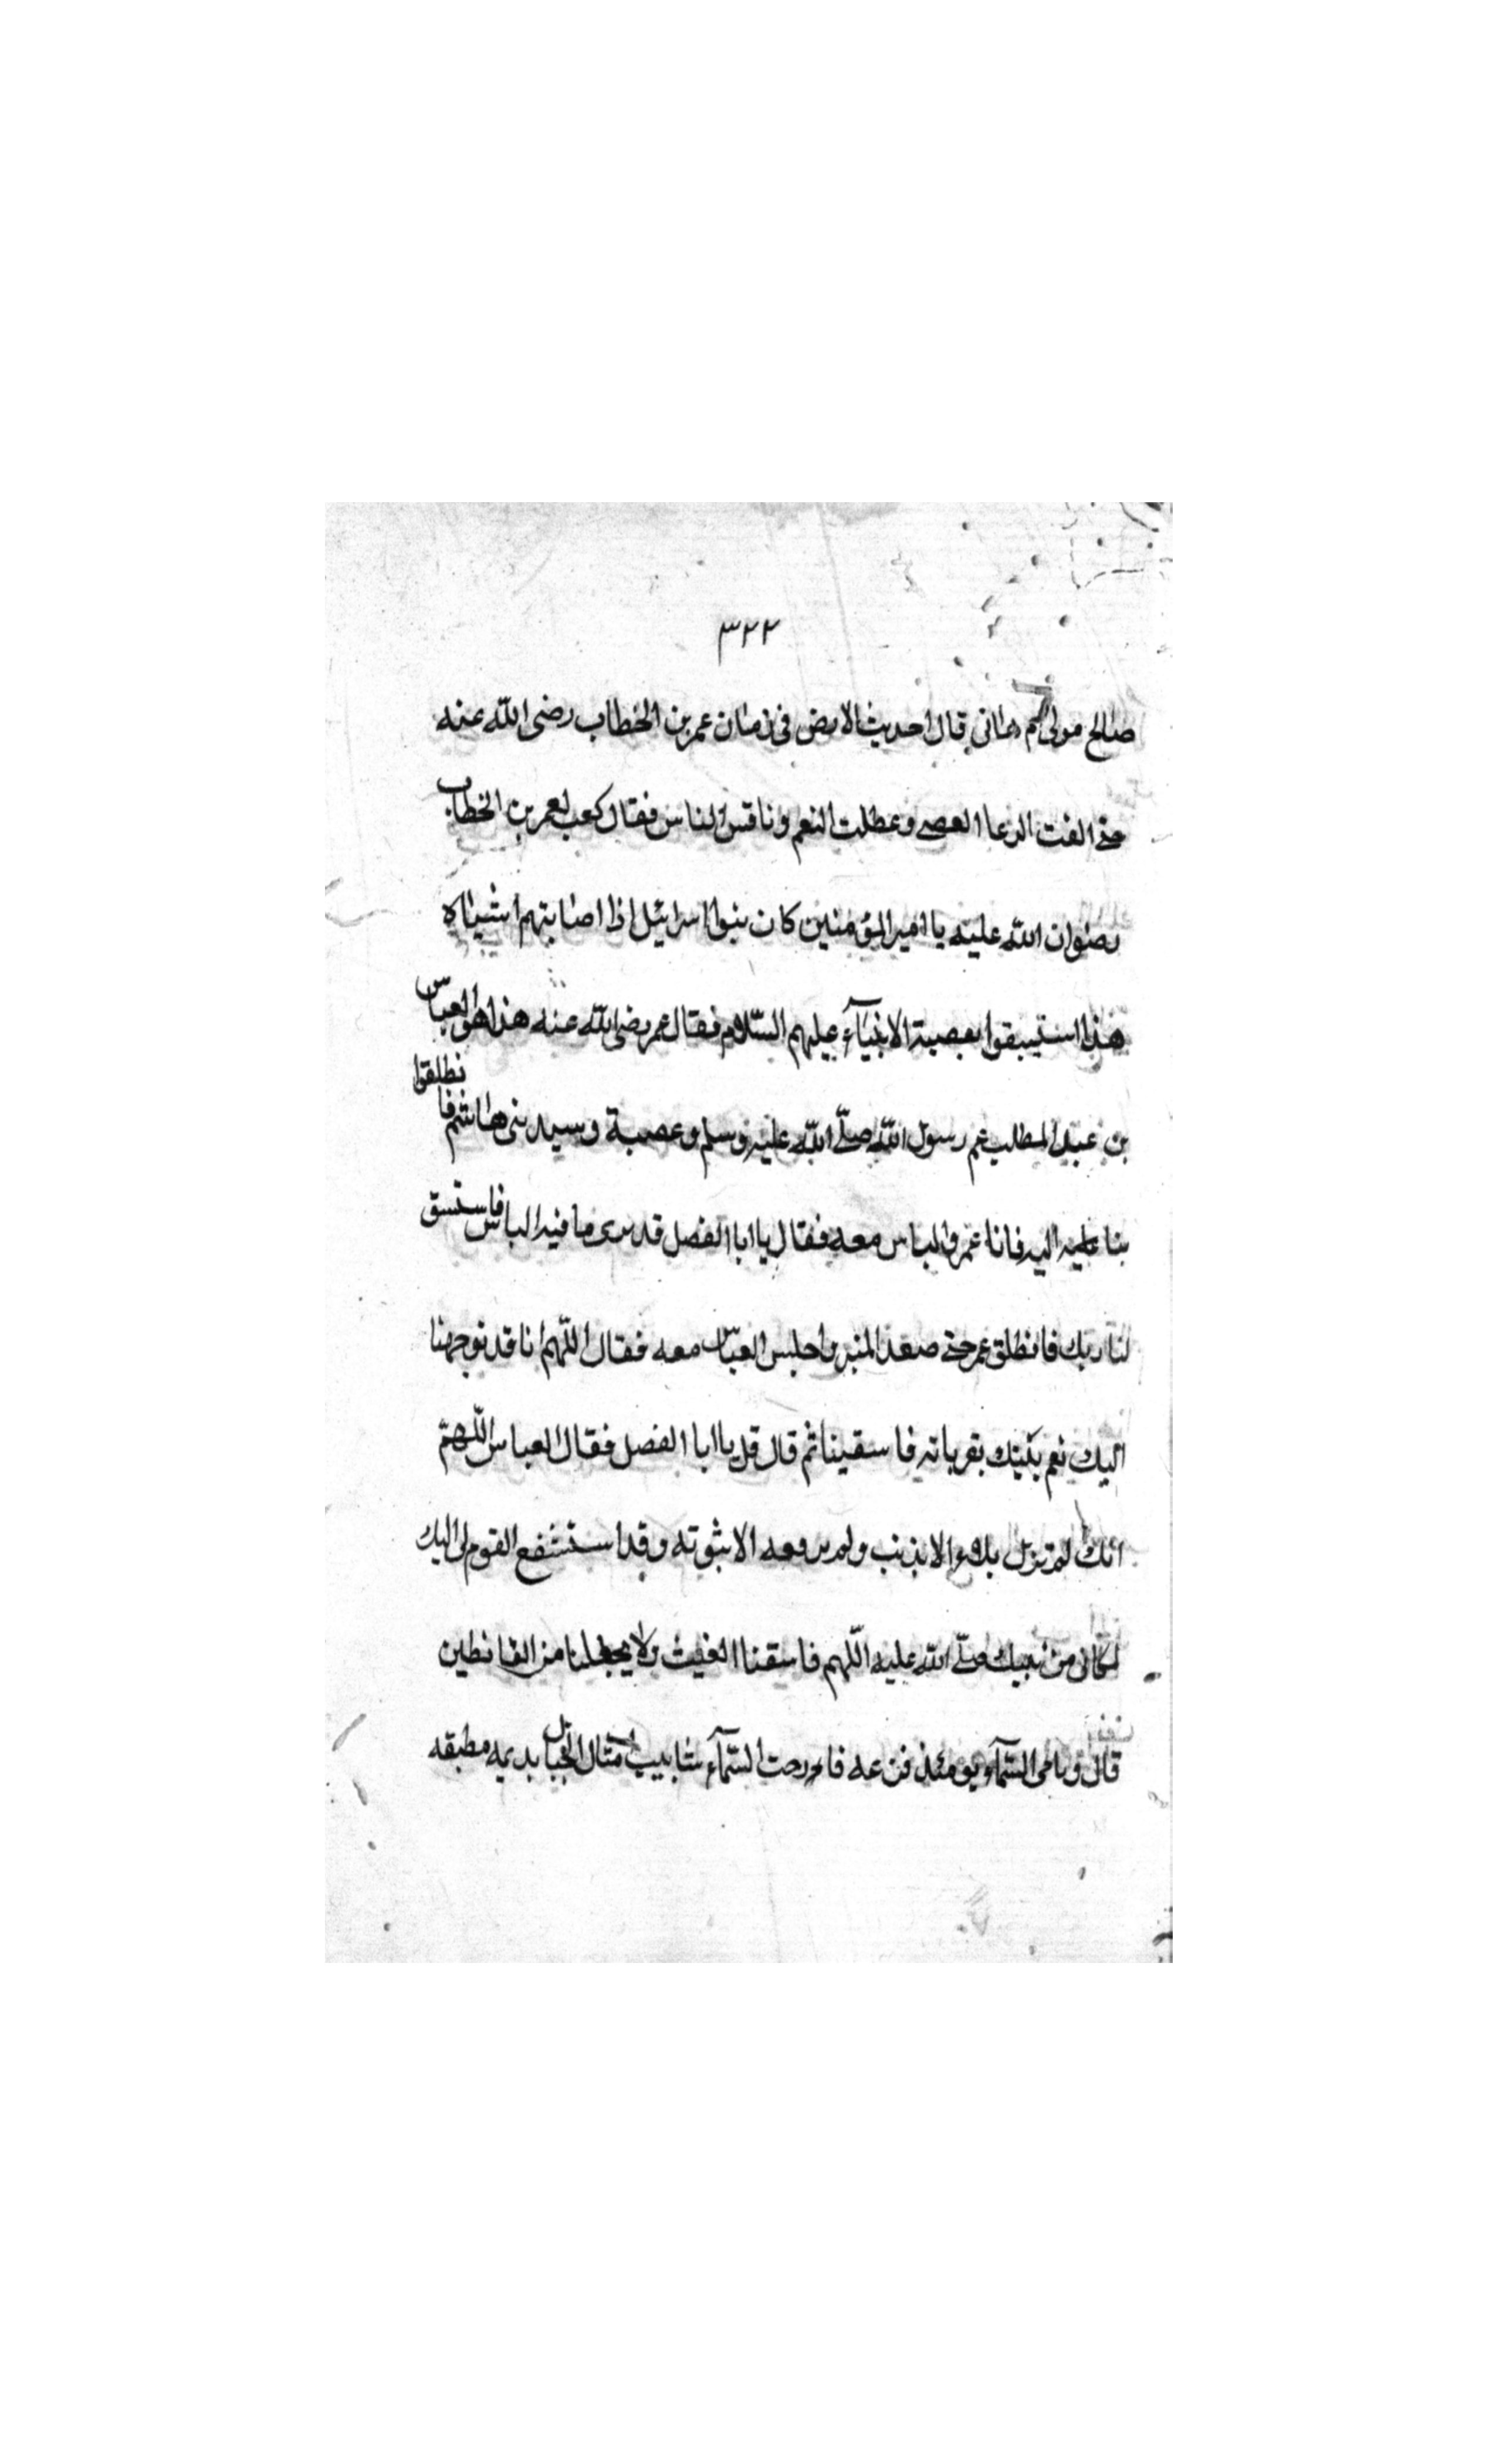 ٣٢٢
صالح مولى قال احديث الارض فى زمان عمر بن الخطاب رضى الله عنه
حتى الفت الرعا العصى وعطلت النعم وناقس الناس فقال كعب لعمر بن الخطاب
رضوان الله عليه يا امير المؤمنين كان بنوا اسرائيل اذا اصابتهم اشياه
هذا استسبقوا بعصبة الانبيآء عيلهم السّلام فقال عمر رضى الله عنه هذا هو العباس
بن عبد المطلب عم رسول الله صلّى الله عليه وسلم وعصبة وسيد بنى هاشم فانطلقوا
بنا اليه فاتا عمر والباس معه فقال يا ابا الفصل قد يرى ما فيه الباس فاستسق
لنا ربك فانطلق عمر حتى صعد المنبر واجلس العبّاس معه فقال اللّهم انا قد توجهنا
اليك نعم بقرباته فاسقينا ثم قال قل يا ابا الفصل فقال العباس اللّهمّ
انك لم تزل بلاء الا بذنب ولم يرفعه الا بثوته وقد استشفع القوم لى اليك
لمكانى من نبيك صلّى الله عليه اللّهم فاسقنا الغيث ولا يجعلنا من القانطين
قال وما فى السّمآء يومئذ قزعه السّمآء شابيب مثال الجبال بديمه مطبقه